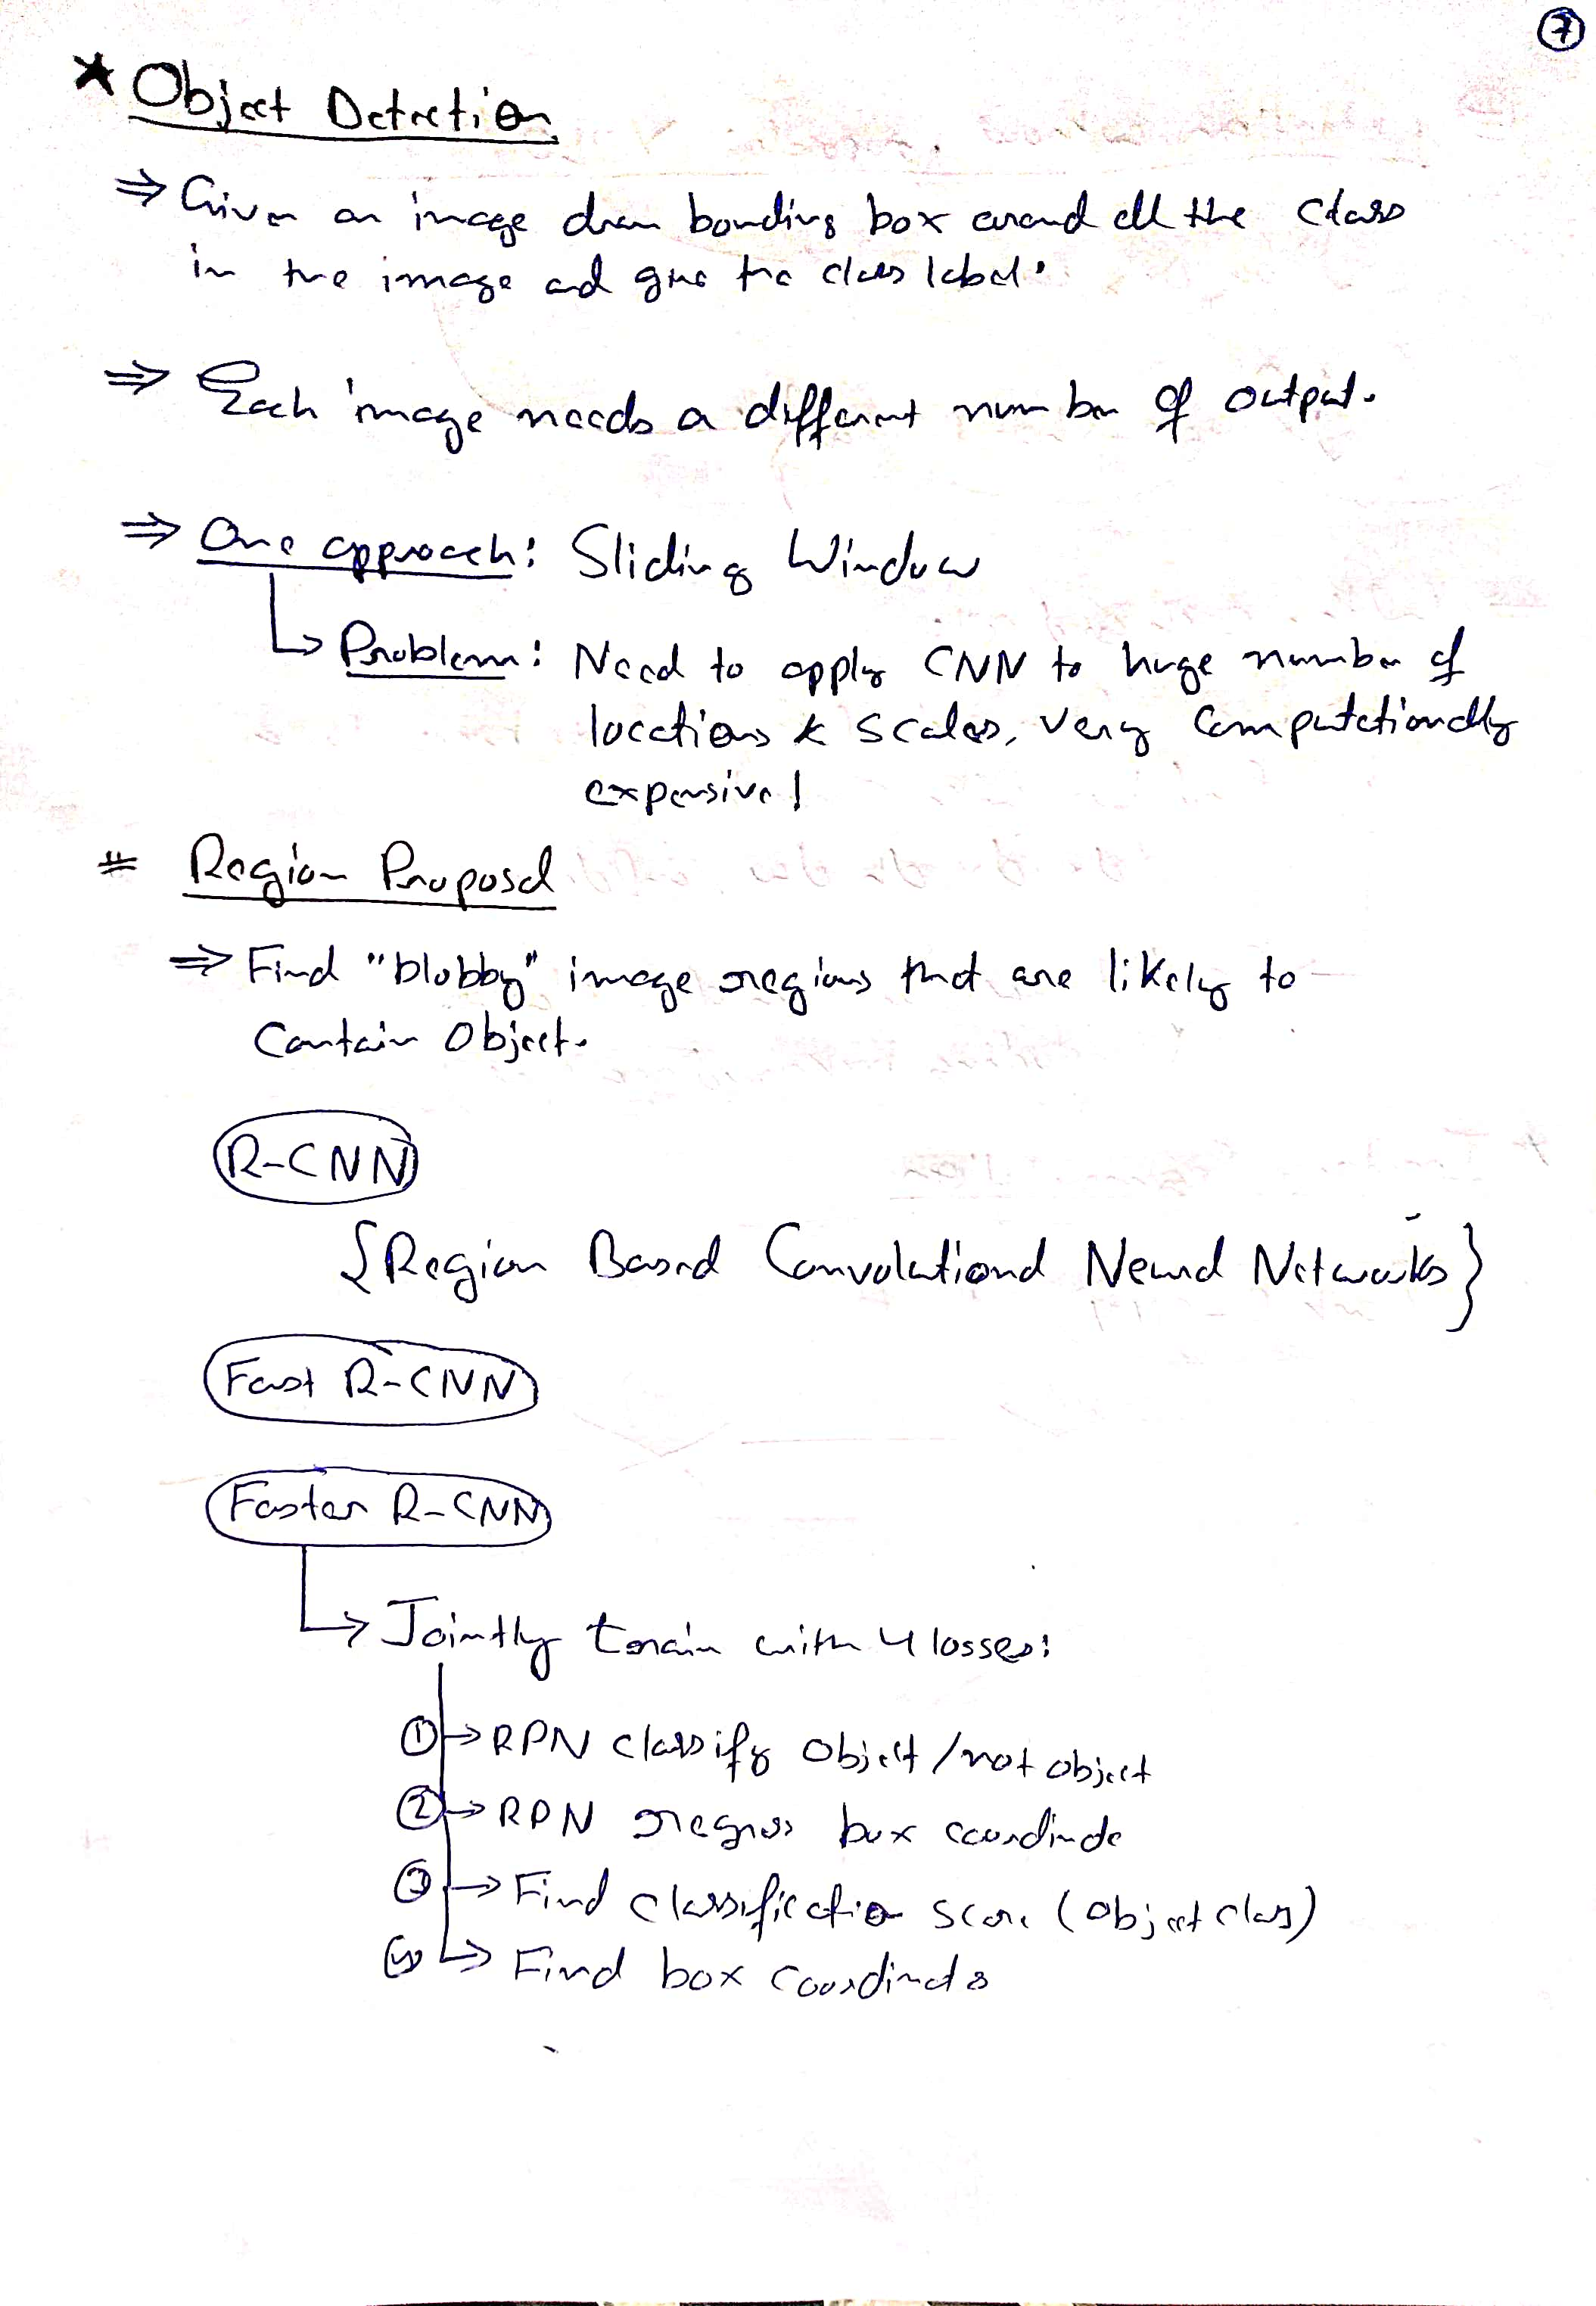 7
* Object Detection
⇒ Given an image draw bounding box around all the class
in the image and give the class label.
⇒ Each image needs a different number of output.
⇒ One approach: Sliding Window
↳ Problem: Need to apply CNN to huge number of
locations & scales, very computationally
expensive!
# Region Proposal
⇒ Find "blobby" image regions that are likely to
Contain Object.
R-CNN
{Region Based Convolutional Neural Networks}
Fast R-CNN
Faster R-CNN
↳ Jointly train with 4 losses:
① → RPN classify object / not object
② → RPN regress box coordinate
③ → Find classification score (Object class)
④ ↳ Find box coordinates